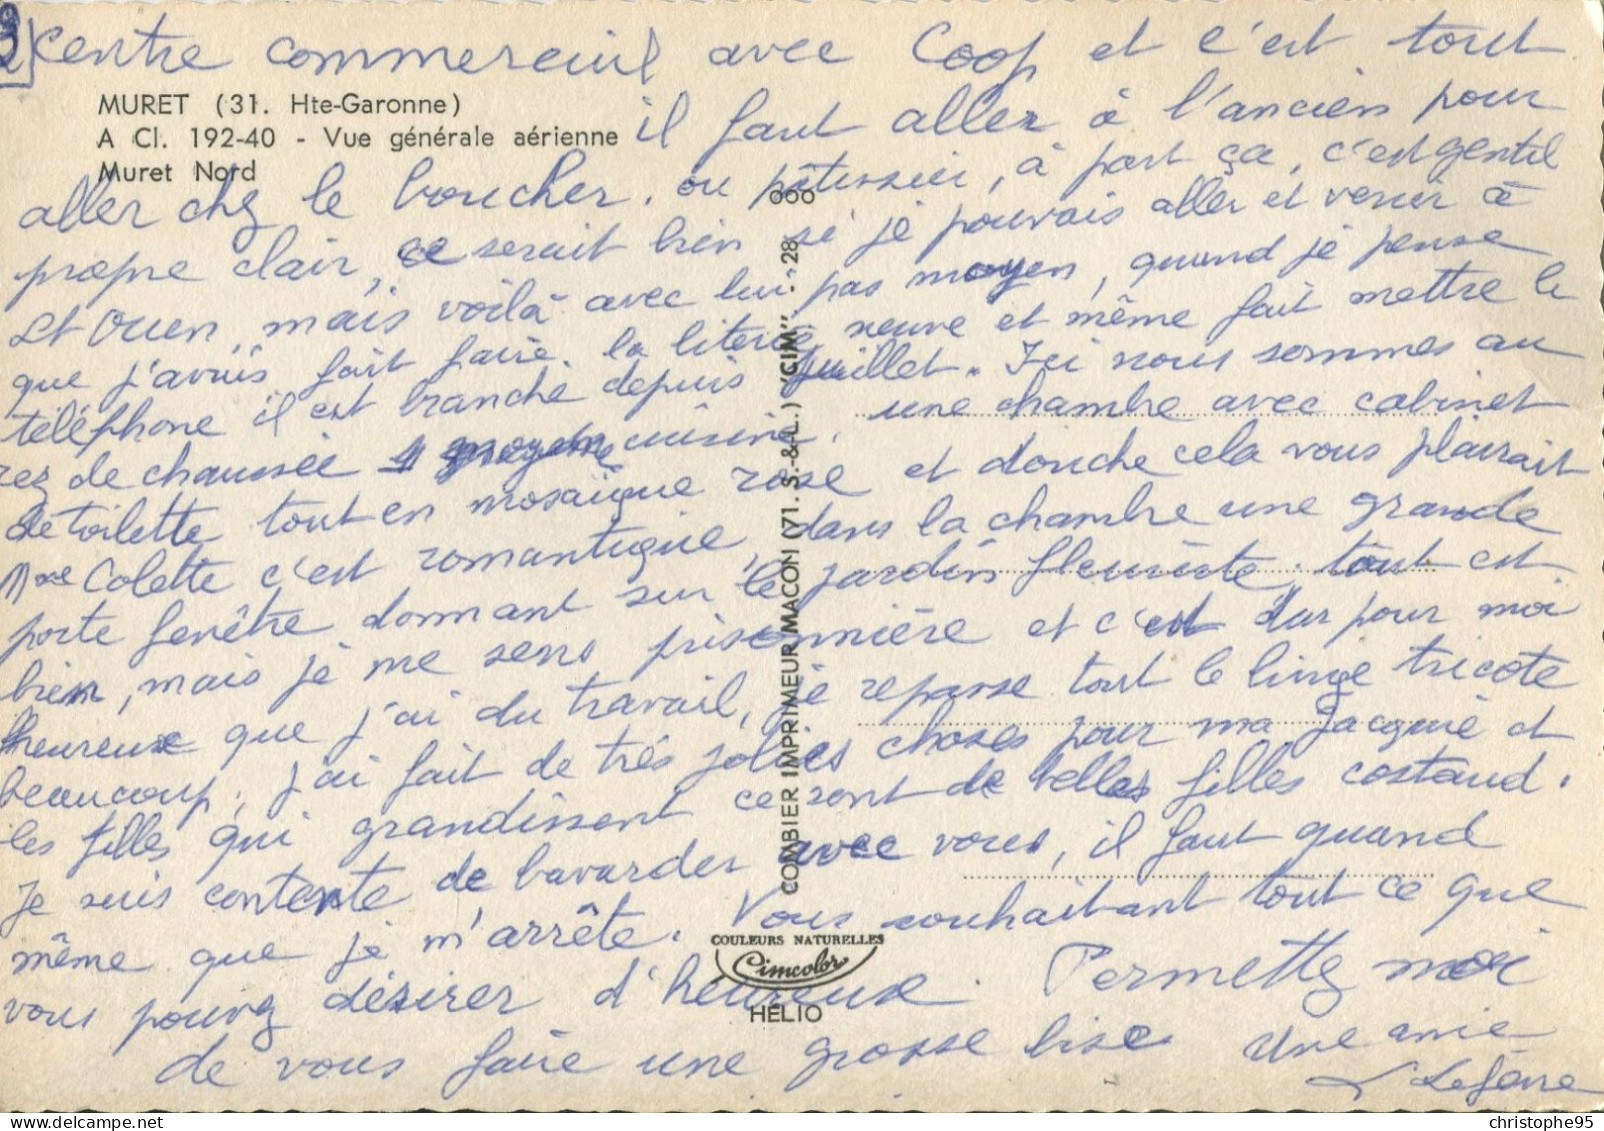 2 centre commercial avec Coop et c'est tout
MURET (31. Hte-Garonne)
A Cl. 192-40 - Vue générale aérienne
Muret Nord
il faut aller à l'ancien pour
aller chez le boucher. ou pâtissier, à part ça, c'est gentil
000
propre clair, ce serait bien si je pouvais aller et venir à
St Ouen, mais voilà avec lui pas moyen, quand je pense
que j'avais fait faire la literie neuve et même fait mettre le
téléphone il est branché depuis Juillet. Ici nous sommes au
rez de chaussée moyenne cuisine, une chambre avec cabinet
de toilette tout en mosaïque rose et douche cela vous plairait
Mme Colette c'est romantique, dans la chambre une grande
porte fenêtre donnant sur le jardin fleuriste. tout est
bien, mais je me sens prisonnière et c'est dur pour moi
heureuse que j'ai du travail, je repasse tout le linge tricote
beaucoup, j'ai fait de très jolies choses pour ma Jacquie et
les filles qui grandissent ce sont de belles filles costaud.
Je suis contente de bavarder avec vous, il faut quand
même que je m'arrête. Vous souhaitant tout ce que
vous pouvez désirer d'heureuse. Permettez moi
de vous faire une grosse bise Une amie
Lefèvre
COMBIER IMPRIMEUR MACON (71. S.-&-L.) "CIM" - 28
COULEURS NATURELLES
Cimcolor
HÉLIO
christophe95